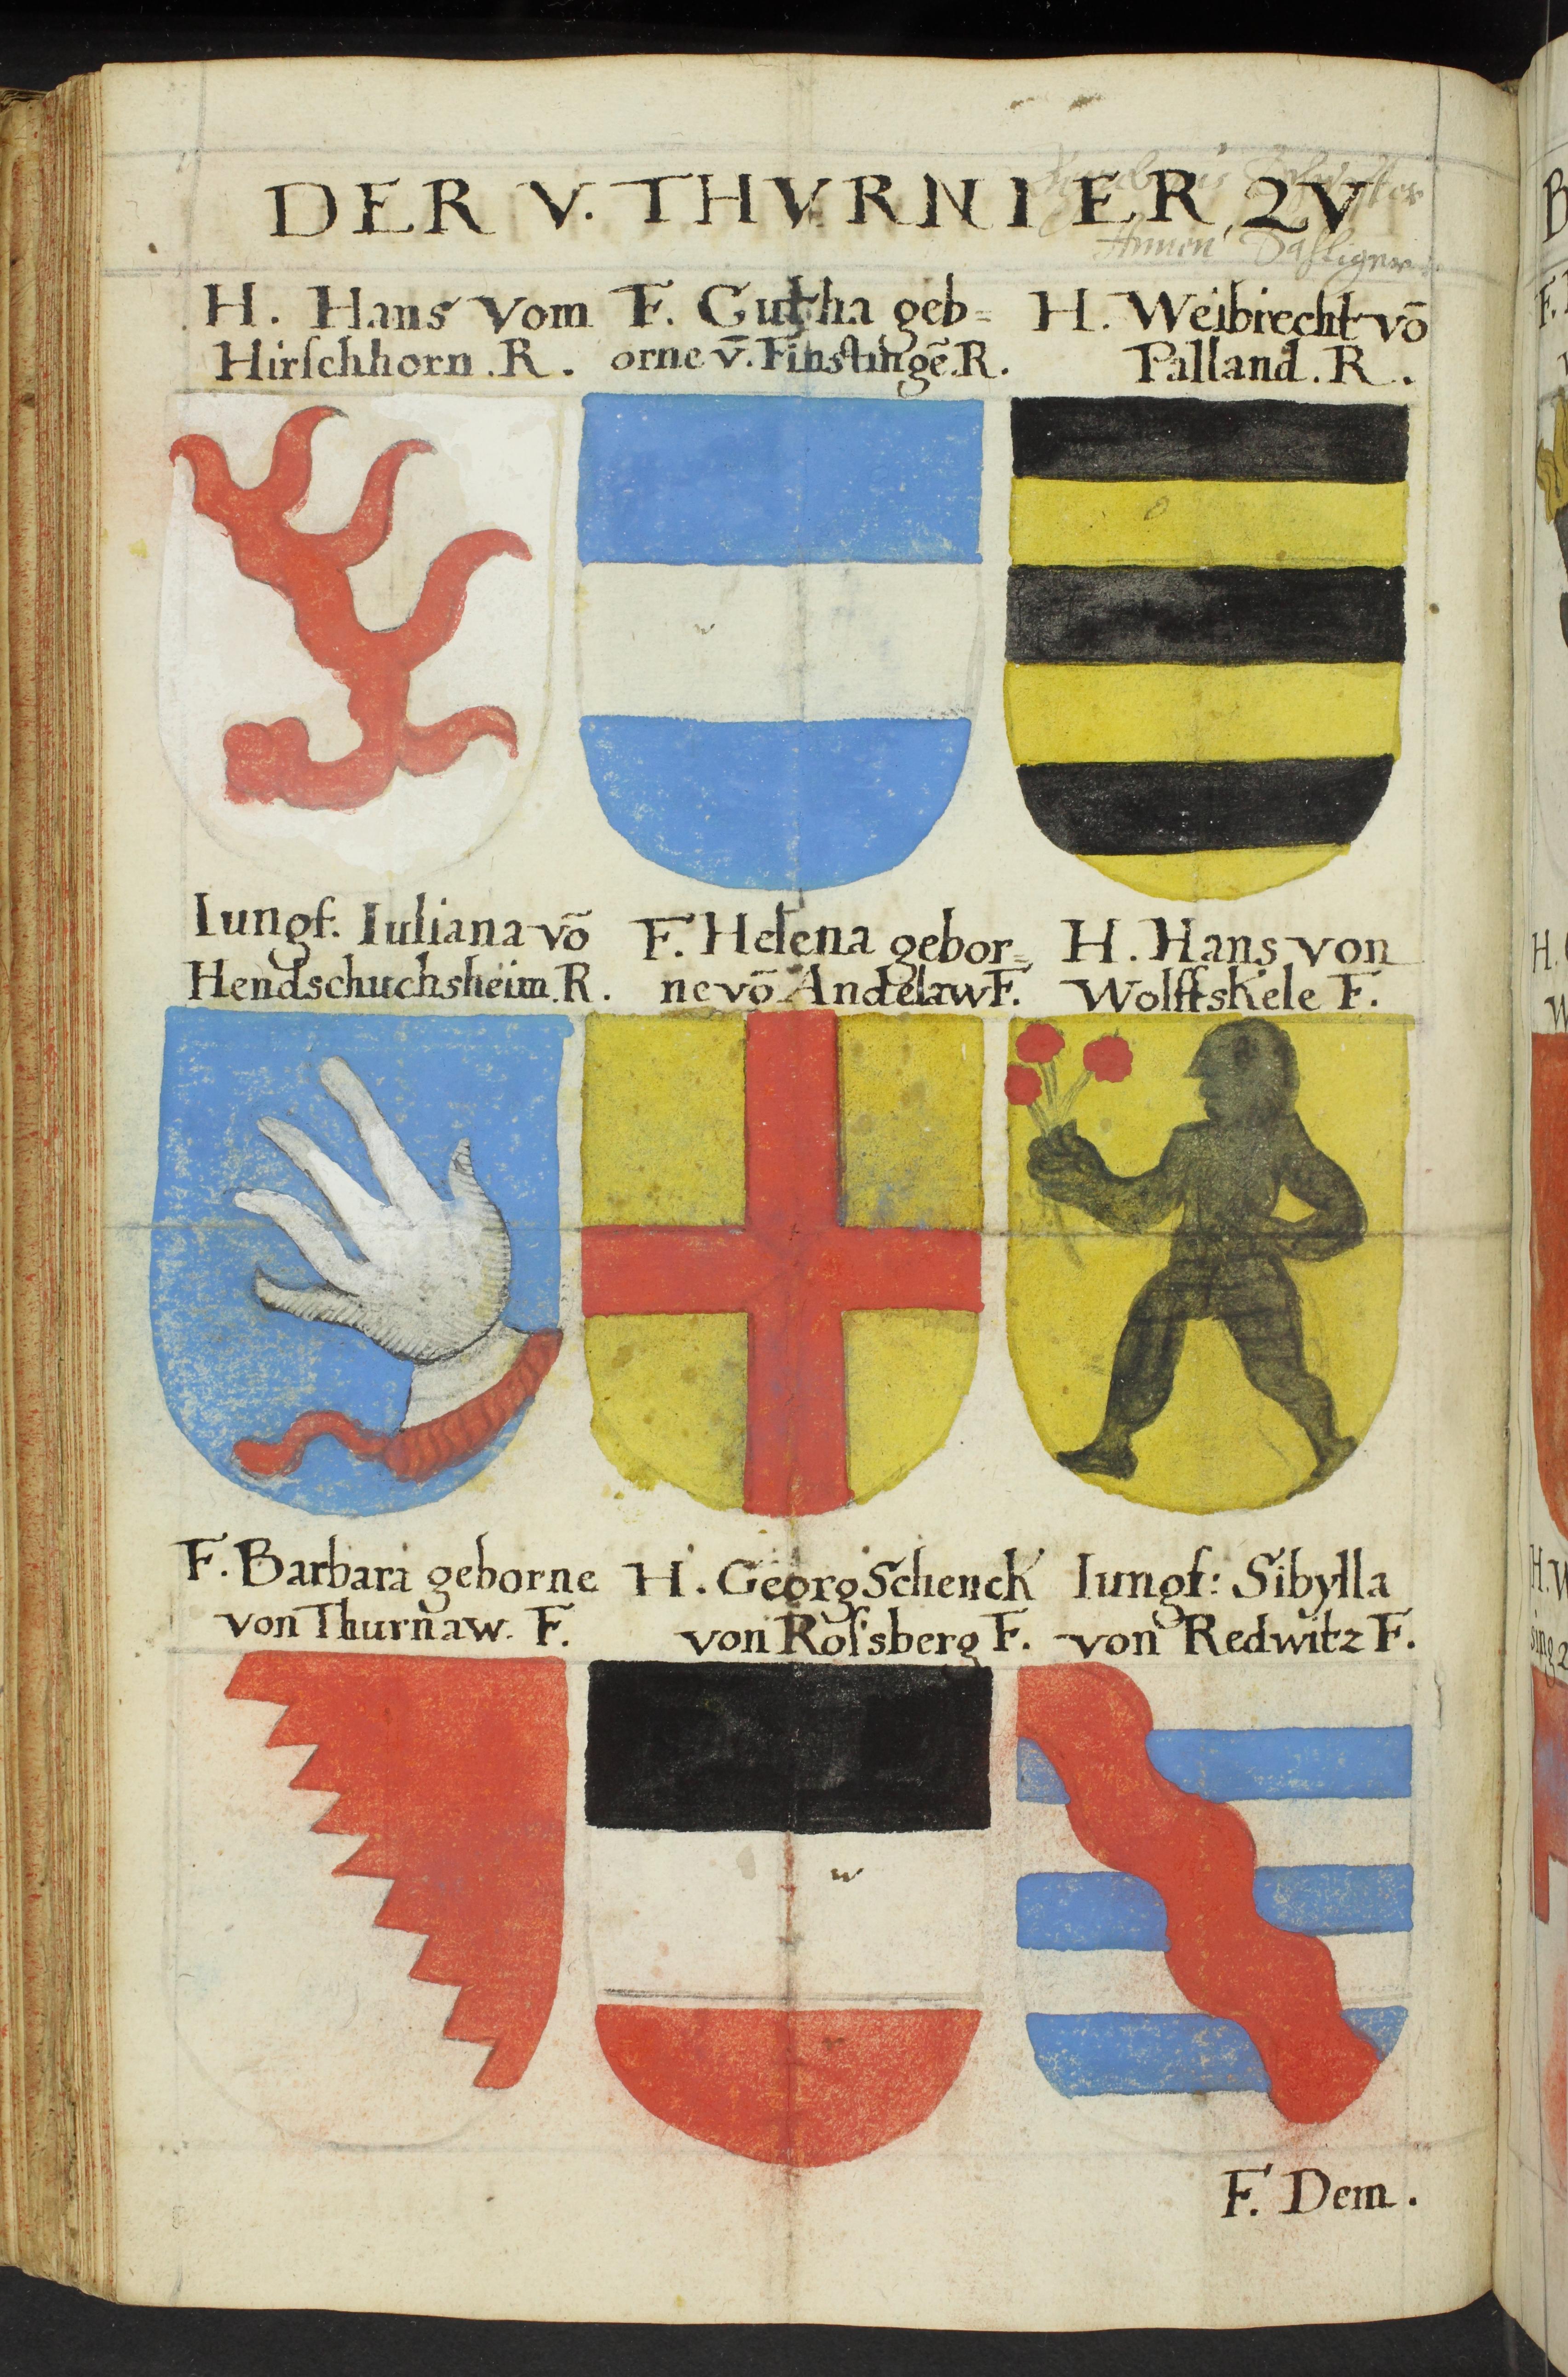 DER V. THVRNIER, ZV
H. Hans Vom
Hirſchhorn. R.
F. Gutha geb=
orne v̄. Finſtingē. R.
H. Weibrecht vō
Palland. R.
Iungf. Iuliana vō
Hendschuchsheim. R.
F. Helena gebor=
ne vō Andelaw F.
H. Hans von
Wolffskele F.
F. Barbara geborne
von Thurnaw. F.
H. Georg Schenck
von Roſsberg F.
Iungf: Sibylla
von Redwitz F.
w
w
F. Dem.